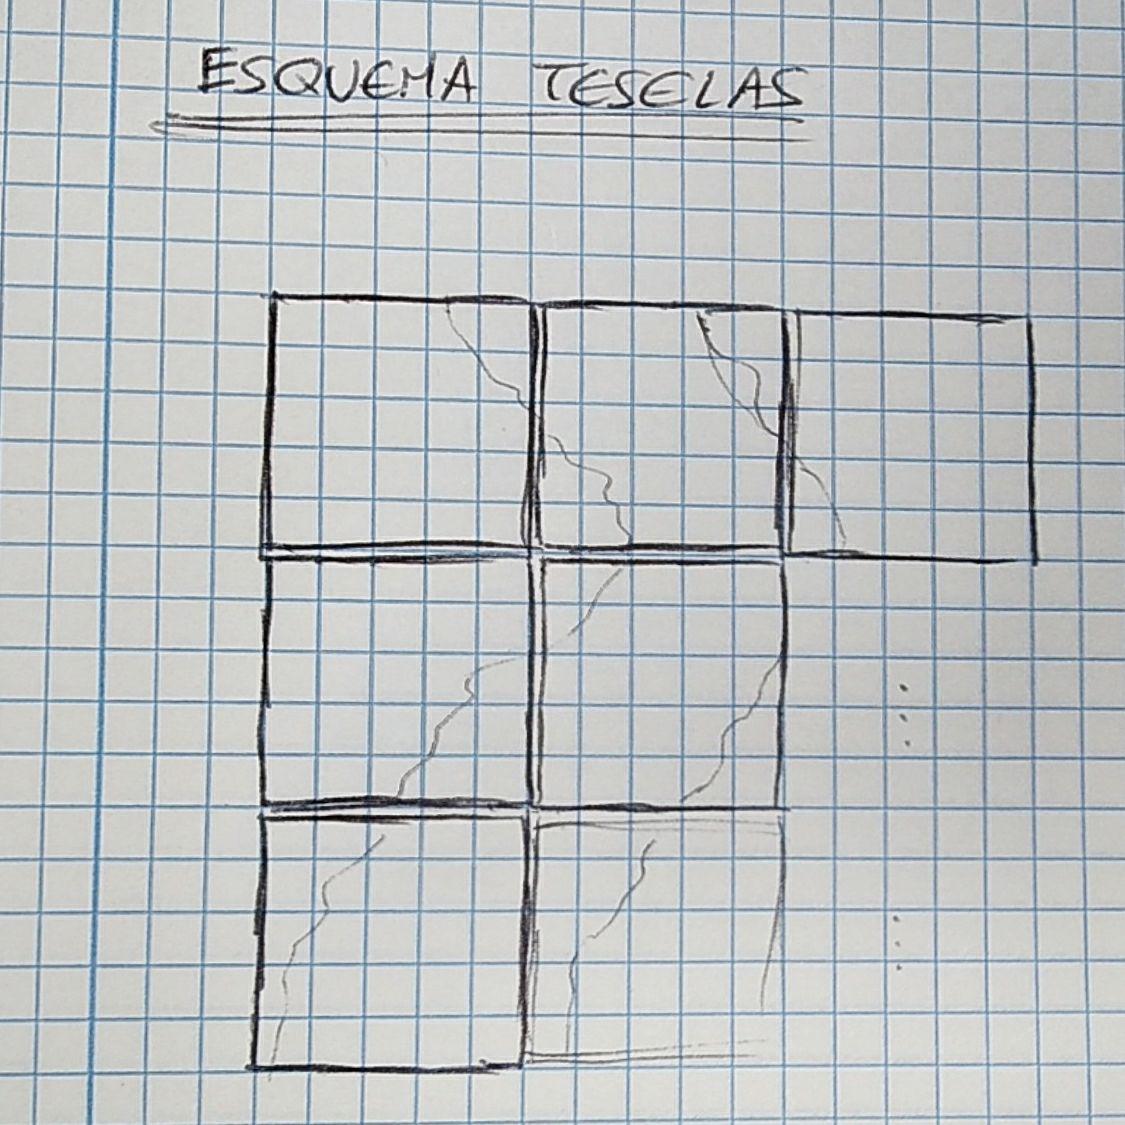 ESQUEMA TESELAS